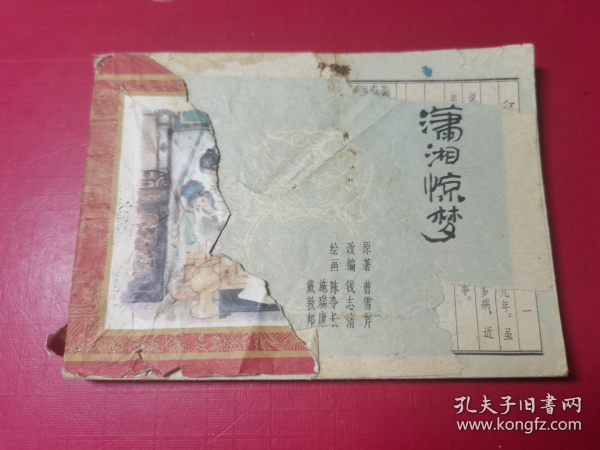 潇湘惊梦
原著 曹雪芹
改编 钱志清
绘画 陈令长
施瑞康
戴敦邦
一
元年。虽
多病，近
事。
孔夫子旧书网
www.kongfz.com